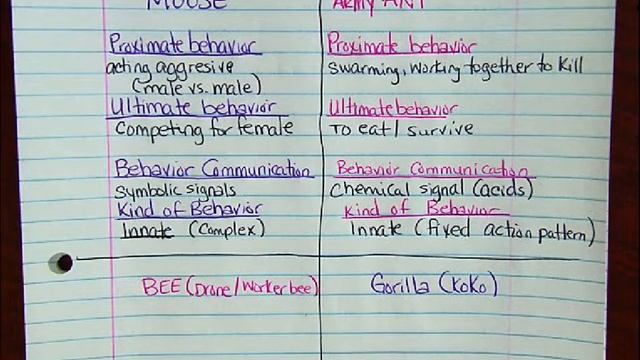 MOOSE
Proximate behavior
acting aggresive
(male vs. male)
Ultimate behavior
Competing for female
Behavior Communication
Symbolic signals
Kind of Behavior
Innate (Complex)
ARMY ANT
Proximate behavior
Swarming, working together to kill
Ultimate behavior
To eat/survive
Behavior Communication
Chemical signal (acids)
Kind of Behavior
Innate (fixed action pattern)
BEE (Drone/Worker bee)
Gorilla (Koko)